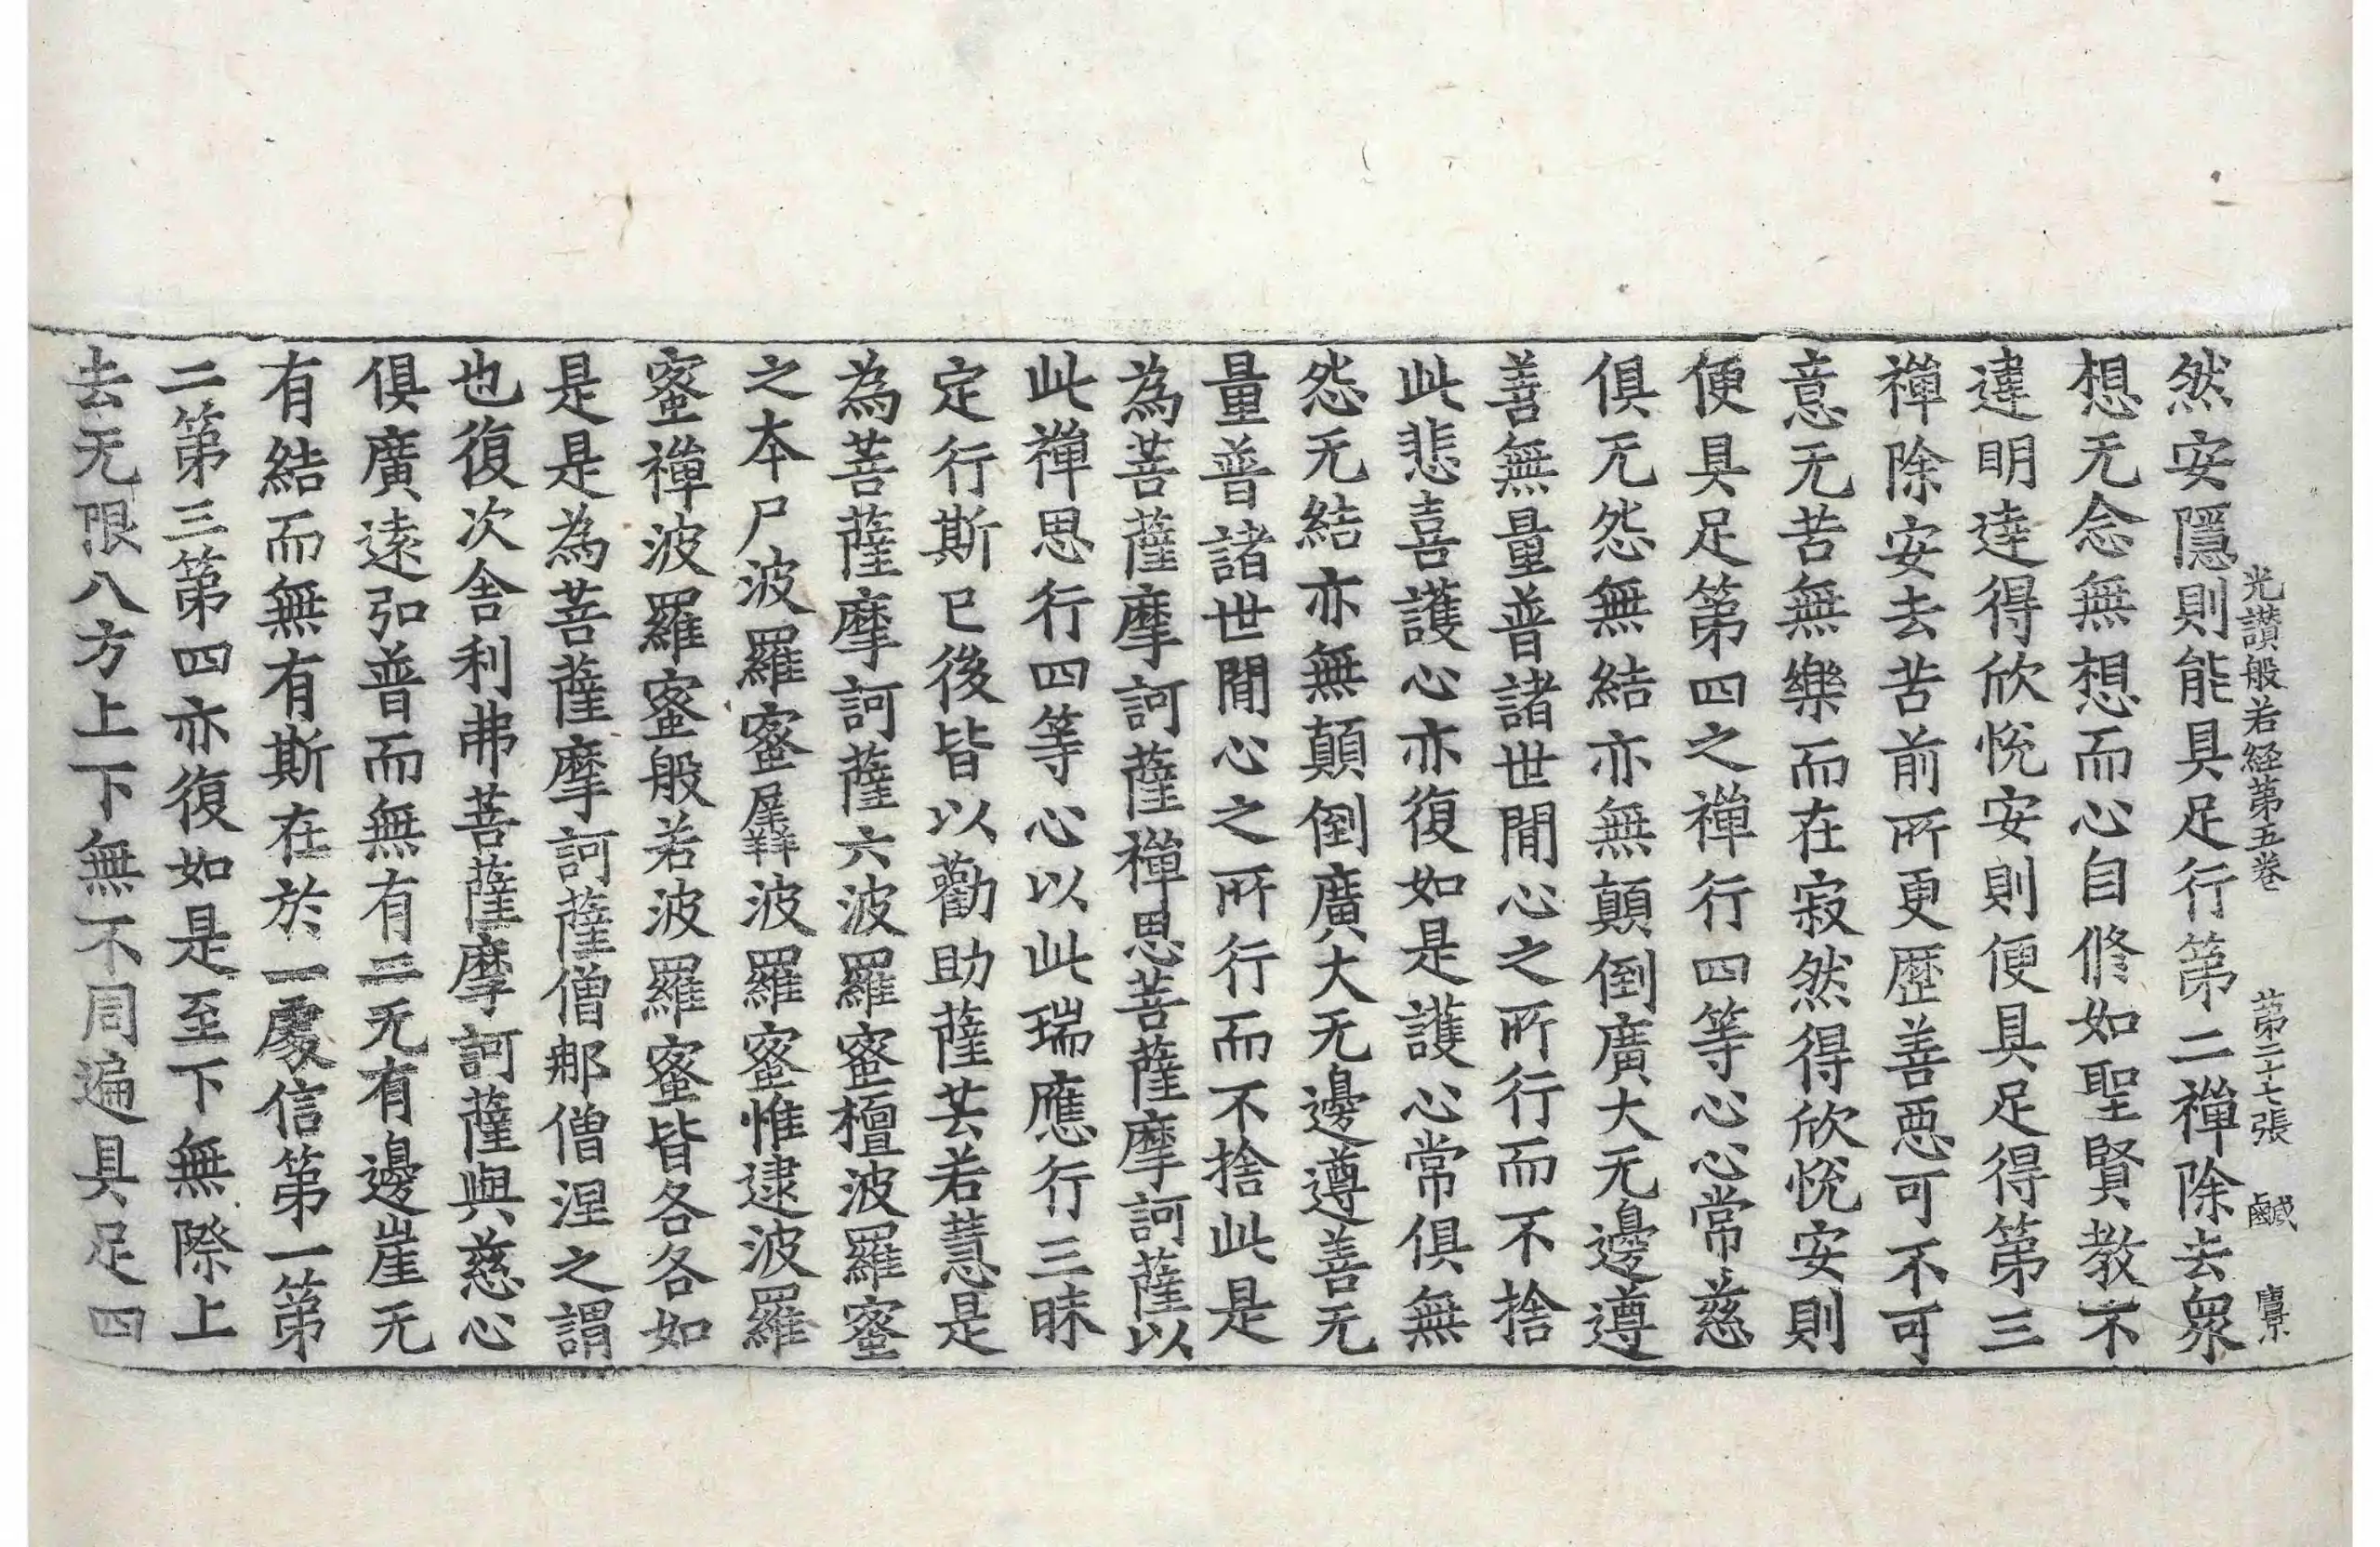 光讃般若経第五巻 第二十七張 鹹
然安隱則能具足行第二禪除去衆
想无念無想而心自脩如聖賢教不
違明達得欣悅安則便具足得第三
禪除安去苦前所更歷善惡可不可
意无苦無樂而在寂然得欣悅安則
便具足第四之禪行四等心心常慈
俱无怨無結亦無顛倒廣大无邊遵
善無量普諸世間心之所行而不捨
此悲喜護心亦復如是護心常俱無
怨无結亦無顛倒廣大无邊遵善无
量普諸世間心之所行而不捨此是
為菩薩摩訶薩禪思菩薩摩訶薩以
此禪思行四等心以此瑞應行三昧
定行斯已後皆以勸助薩芸若慧是
為菩薩摩訶薩六波羅蜜檀波羅蜜
之本尸波羅蜜羼波羅蜜惟逮波羅
蜜禪波羅蜜般若波羅蜜皆各各如
是是為菩薩摩訶薩僧那僧涅之謂
也復次舍利弗菩薩摩訶薩與慈心
俱廣遠弘普而無有二无有邊崖无
有結而無有斯在於一處信第一第
二第三第四亦復如是至下無際上
去无限八方上下無不同遍具足四